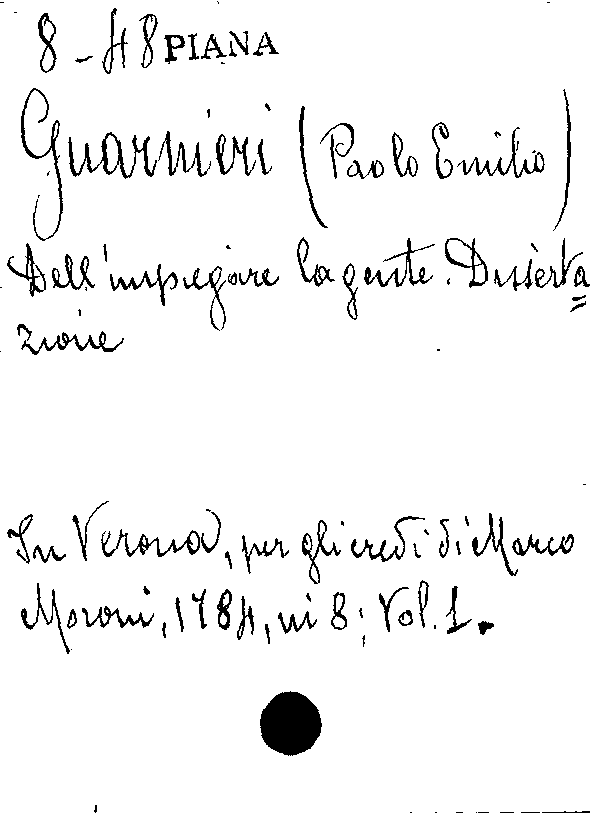 8-48 PIANA
Guarnieri (Paolo Emilio)
Dell'impiegare la gente. Disserta=
zione
In Verona, per gli eredi di Marco
Moroni, 1784, in 8; Vol. 1.